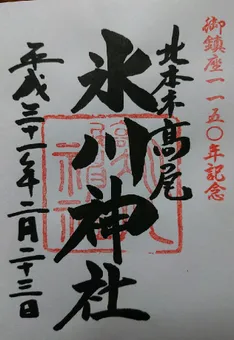 御鎮座一一五〇年記念
北本市高尾
氷川神社
平成三十一年二月二十三日